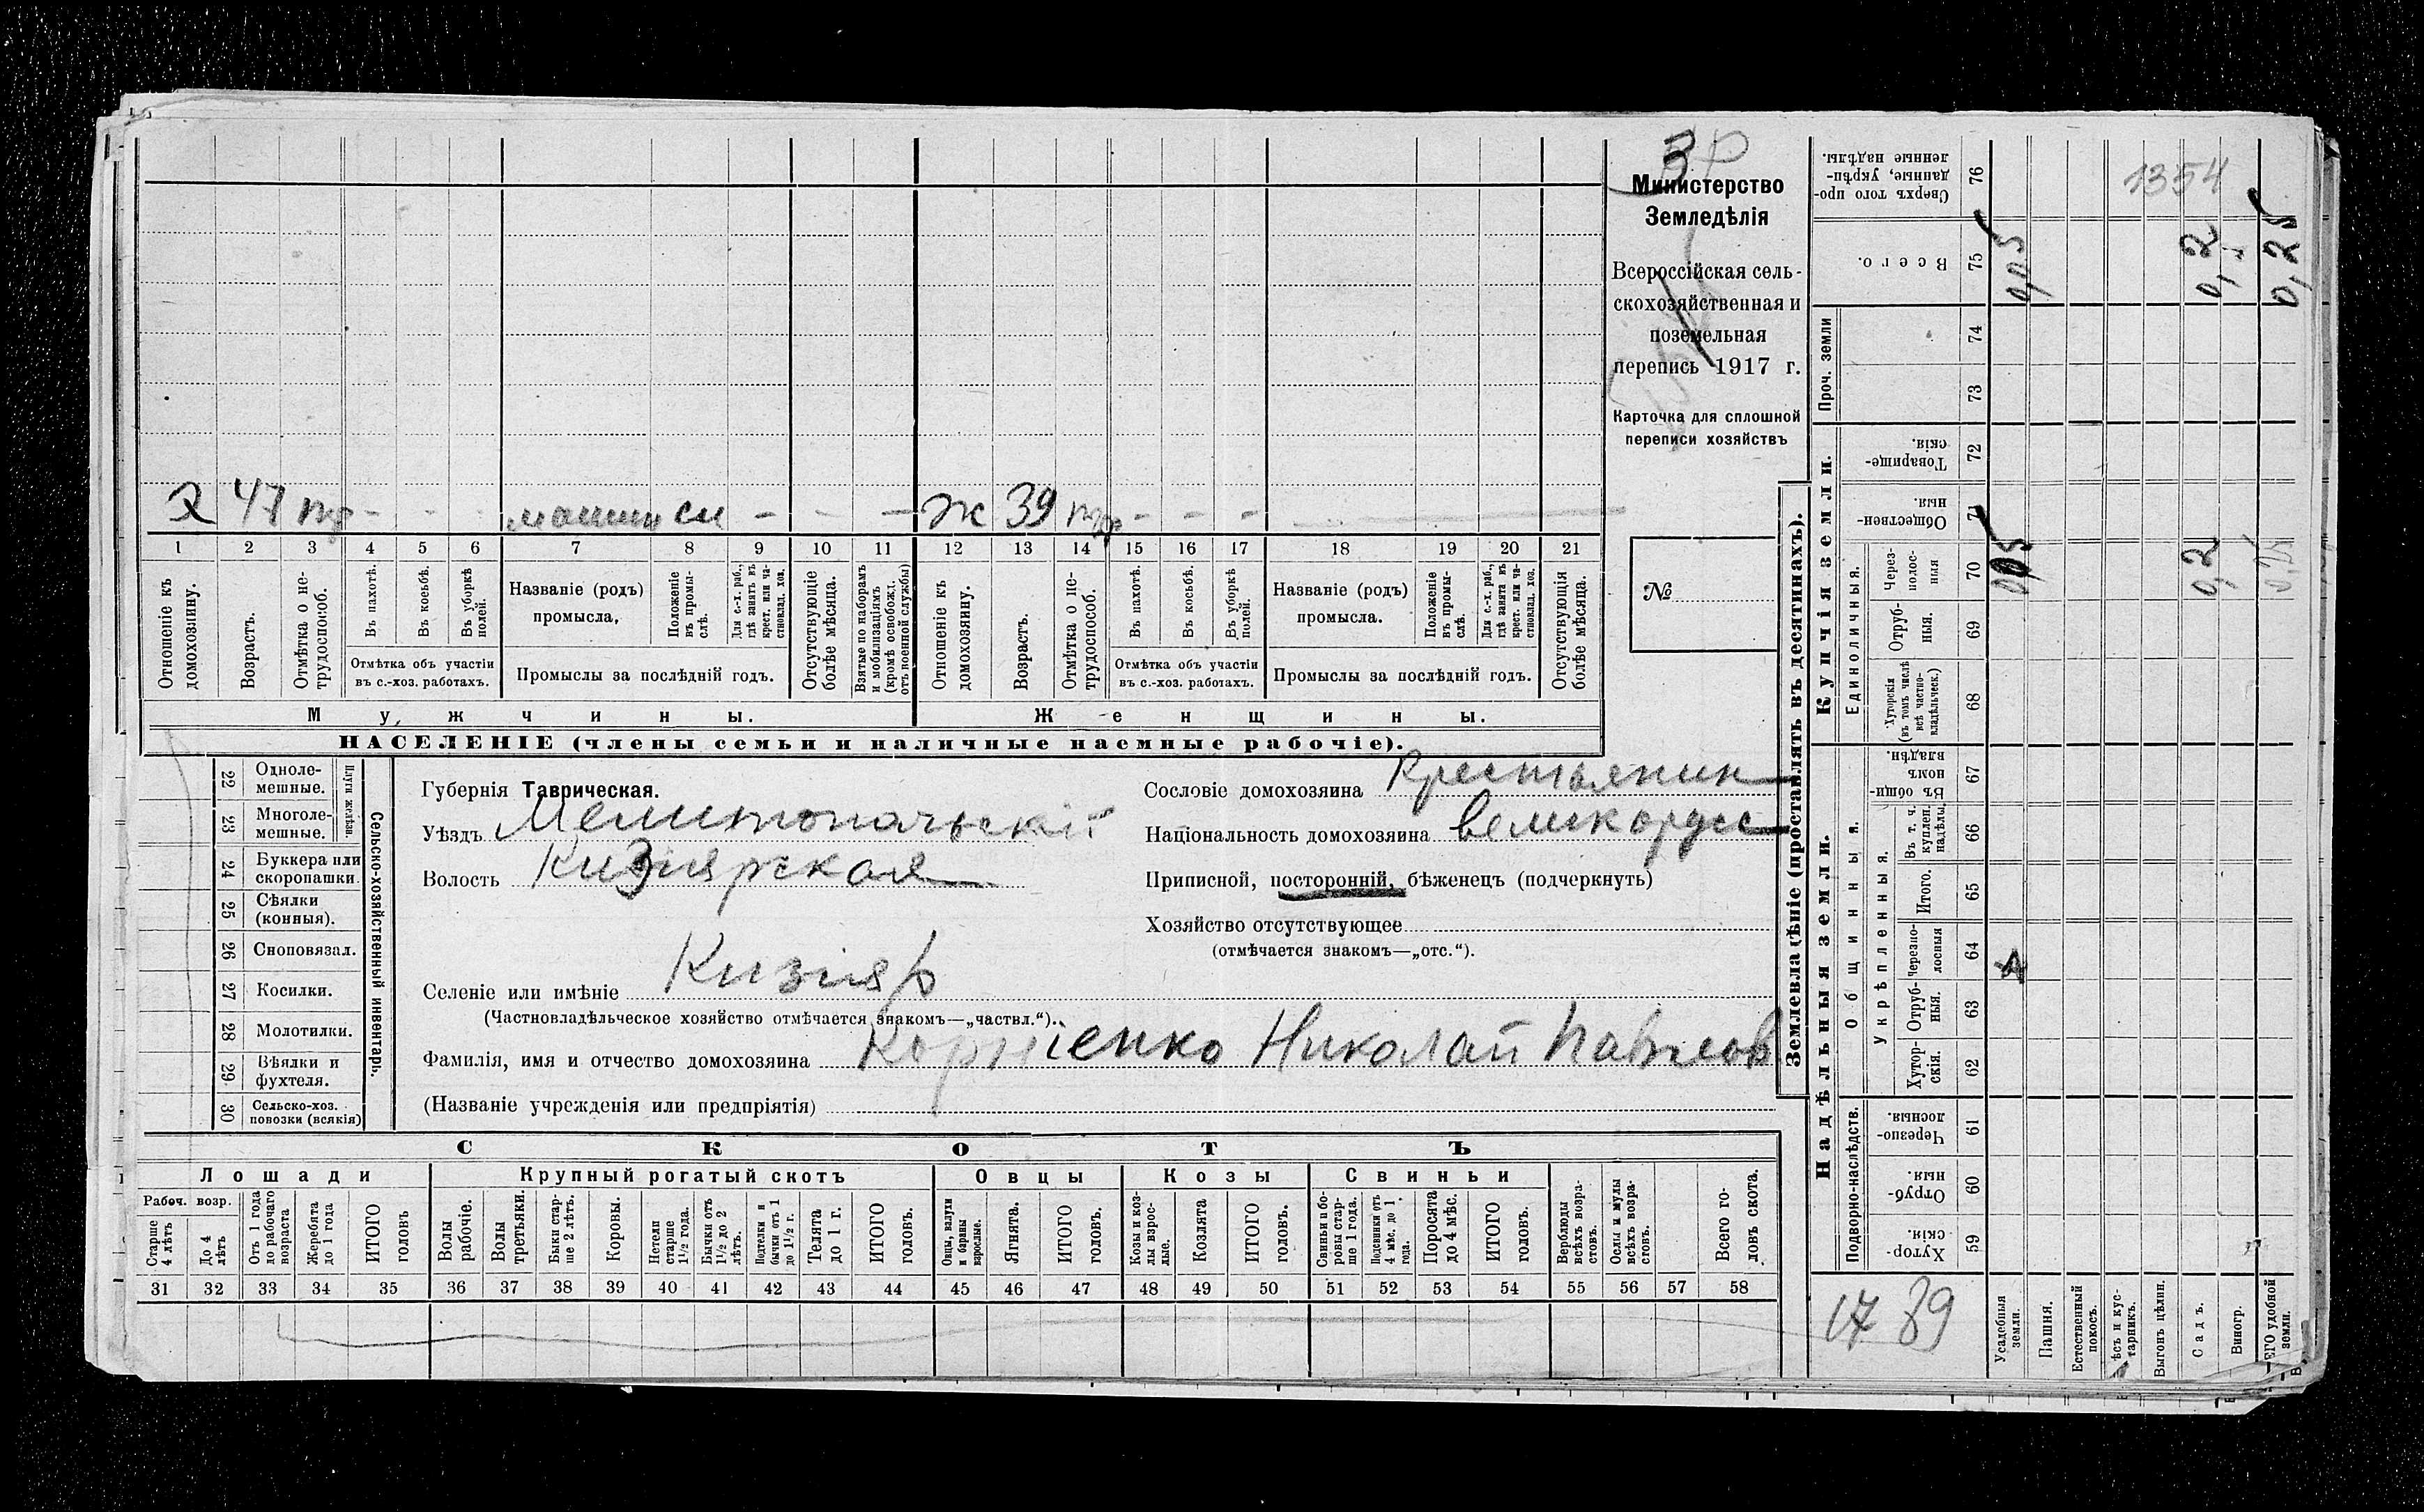 1354
Министерство
Земледѣлія
Всероссійская сель-
скохозяйственная и
поземельная
перепись 1917 г.
Карточка для сплошной
переписи хозяйствъ
№
х 47 тр - - - машин сл - - - ж 39 тр - - -
1 2 3 4 5 6 7 8 9 10 11 12 13 14 15 16 17 18 19 20 21
Отношеніе къ домохозяину.
Возрастъ.
Отмѣтка о не-трудоспособ.
Въ пахотѣ.
Въ косьбѣ.
Въ уборкѣ полей.
Отмѣтка объ участіи
въ с.-хоз. работахъ.
Названіе (родъ)
промысла,
Положеніе въ промы-слѣ.
Для с.-х. раб., гдѣ занятъ въ крест. или ча-стновлад. хоз.
Промыслы за послѣдній годъ.
Отсутствующіе болѣе мѣсяца.
Взятые по наборамъ и мобилизаціямъ (кромѣ освобожд. отъ военной службы)
Отношеніе къ домохозяину.
Возрастъ.
Отмѣтка о не-трудоспособ.
Въ пахотѣ.
Въ косьбѣ.
Въ уборкѣ полей.
Отмѣтка объ участіи
въ с.-хоз. работахъ.
Названіе (родъ)
промысла.
Положеніе въ промы-слѣ.
Для с.-х. раб., гдѣ занята въ крест. или ча-стновлад. хоз.
Промыслы за послѣдній годъ.
Отсутствующія болѣе мѣсяца.
Мужчины.
Женщины.
НАСЕЛЕНІЕ (члены семьи и наличные наемные рабочіе).
22 Одноле-мешные.
23 Многоле-мешные.
Плуги желѣзн.
24 Буккера или скоропашки.
25 Сѣялки (конныя).
26 Сноповязал.
27 Косилки.
28 Молотилки.
29 Вѣялки и фухтеля.
30 Сельско-хоз. повозки (всякія)
Сельско-хозяйственный инвентарь.
Губернія Таврическая.
Уѣздъ Мелитопольскій
Волость Кизіярская
Селеніе или имѣніе Кизіяр
(Частновладѣльческое хозяйство отмѣчается знакомъ—„частвл.“).
Фамилія, имя и отчество домохозяина Корниенко Николай Павлов
(Названіе учрежденія или предпріятія)
Сословіе домохозяина Крестьянин
Національность домохозяина великорусс
Приписной, посторонній, бѣженецъ (подчеркнуть)
Хозяйство отсутствующее
(отмѣчается знакомъ—„отс.“).
СКОТЪ
Лошади
Крупный рогатый скотъ
Овцы
Козы
Свиньи
Рабоч. возр.
Старше 4 лѣтъ
До 4 лѣтъ
Отъ 1 года до рабочаго возраста
Жеребята до 1 года
ИТОГО головъ
Волы рабочіе.
Волы третьяки.
Быки стар-ше 2 лѣтъ.
Коровы.
Нетели старше 1½ года.
Бычки отъ 1½ до 2 лѣтъ.
Подтелки и бычки отъ 1 до 1½ г.
Телята до 1 г.
ИТОГО головъ.
Овцы, валухи и бараны взрослые.
Ягнята.
ИТОГО головъ.
Козы и коз-лы взрос-лые.
Козлята
ИТОГО головъ.
Свиньи и бо-ровы стар-ше 1 года.
Подсвинки отъ 4 мѣс. до 1 года.
Поросята до 4 мѣс.
ИТОГО головъ.
Верблюды всѣхъ возра-стовъ.
Ослы и мулы всѣхъ возра-стовъ.
Всего го-ловъ скота.
31 32 33 34 35 36 37 38 39 40 41 42 43 44 45 46 47 48 49 50 51 52 53 54 55 56 57 58
Землевладѣніе (проставлять въ десятинахъ).
Надѣльныя земли.
Купчія земли.
Проч. земли
Подворно-наслѣдств.
Общинныя.
Укрѣпленныя.
Единоличныя.
59 Хутор-скія.
60 Отруб-ныя.
61 Черезпо-лосныя.
62 Хутор-скія.
63 Отруб-ныя.
64 Черезпо-лосныя
65 Итого.
66 Въ т. ч. куплен. надѣлы.
67 Въ общи-номъ владѣн.
68 Хуторскія (въ томъ числѣ всѣ частно-владѣльческ.)
69 Отруб-ныя.
70 Через-полос-ныя
71 Обществен-ныя.
72 Товарище-скія.
73
74
75 Всего.
76 Сверхъ того про-данные, укрѣп-ленные надѣлы.
0,05 0,2 0,25
0,05 0,2 0,25
17 39
Усадебныя земли.
Пашня.
Естественный покосъ.
ѣсъ и кус-тарникъ.
Выгонъ цѣлин.
Садъ.
Виногр.
ЕГО удобной земли.